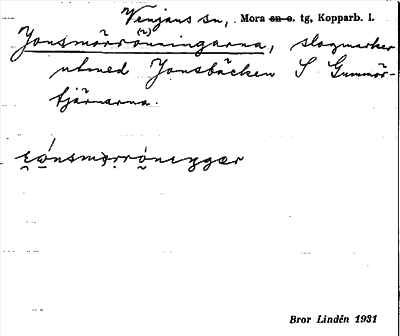 Venjans sn, Mora sn o. tg, Kopparb. l.
Jonsmörr(r)öningarna, slogmarker
utmed Jonsbäcken S Gummör-
tjärnarna.
Bror Lindén 1931